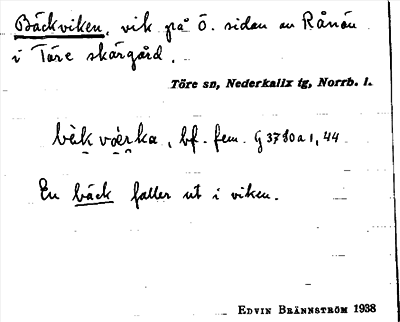 Bäckviken, vik på Ö. sidan av Rånön
i Töre skärgård.
Töre sn, Nederkalix tg, Norrb. l.
bèk vørka, bf. fem. G 3780 a 1, 44
En bäck faller ut i viken.
EDVIN BRÄNNSTRÖM 1938